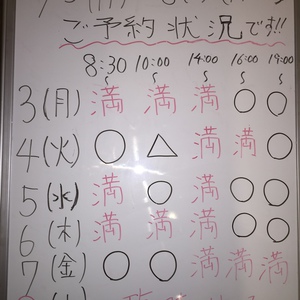 ご予約状況です!!
8:30 10:00 14:00 16:00 19:00
〜 〜 〜 〜 〜
3(月) 満 満 満 ○ ○
4(火) ○ △ 満 満 ○
5(水) 満 ○ 満 ○ ○
6(木) 満 満 満 ○ ○
7(金) ○ ○ 満 満 満